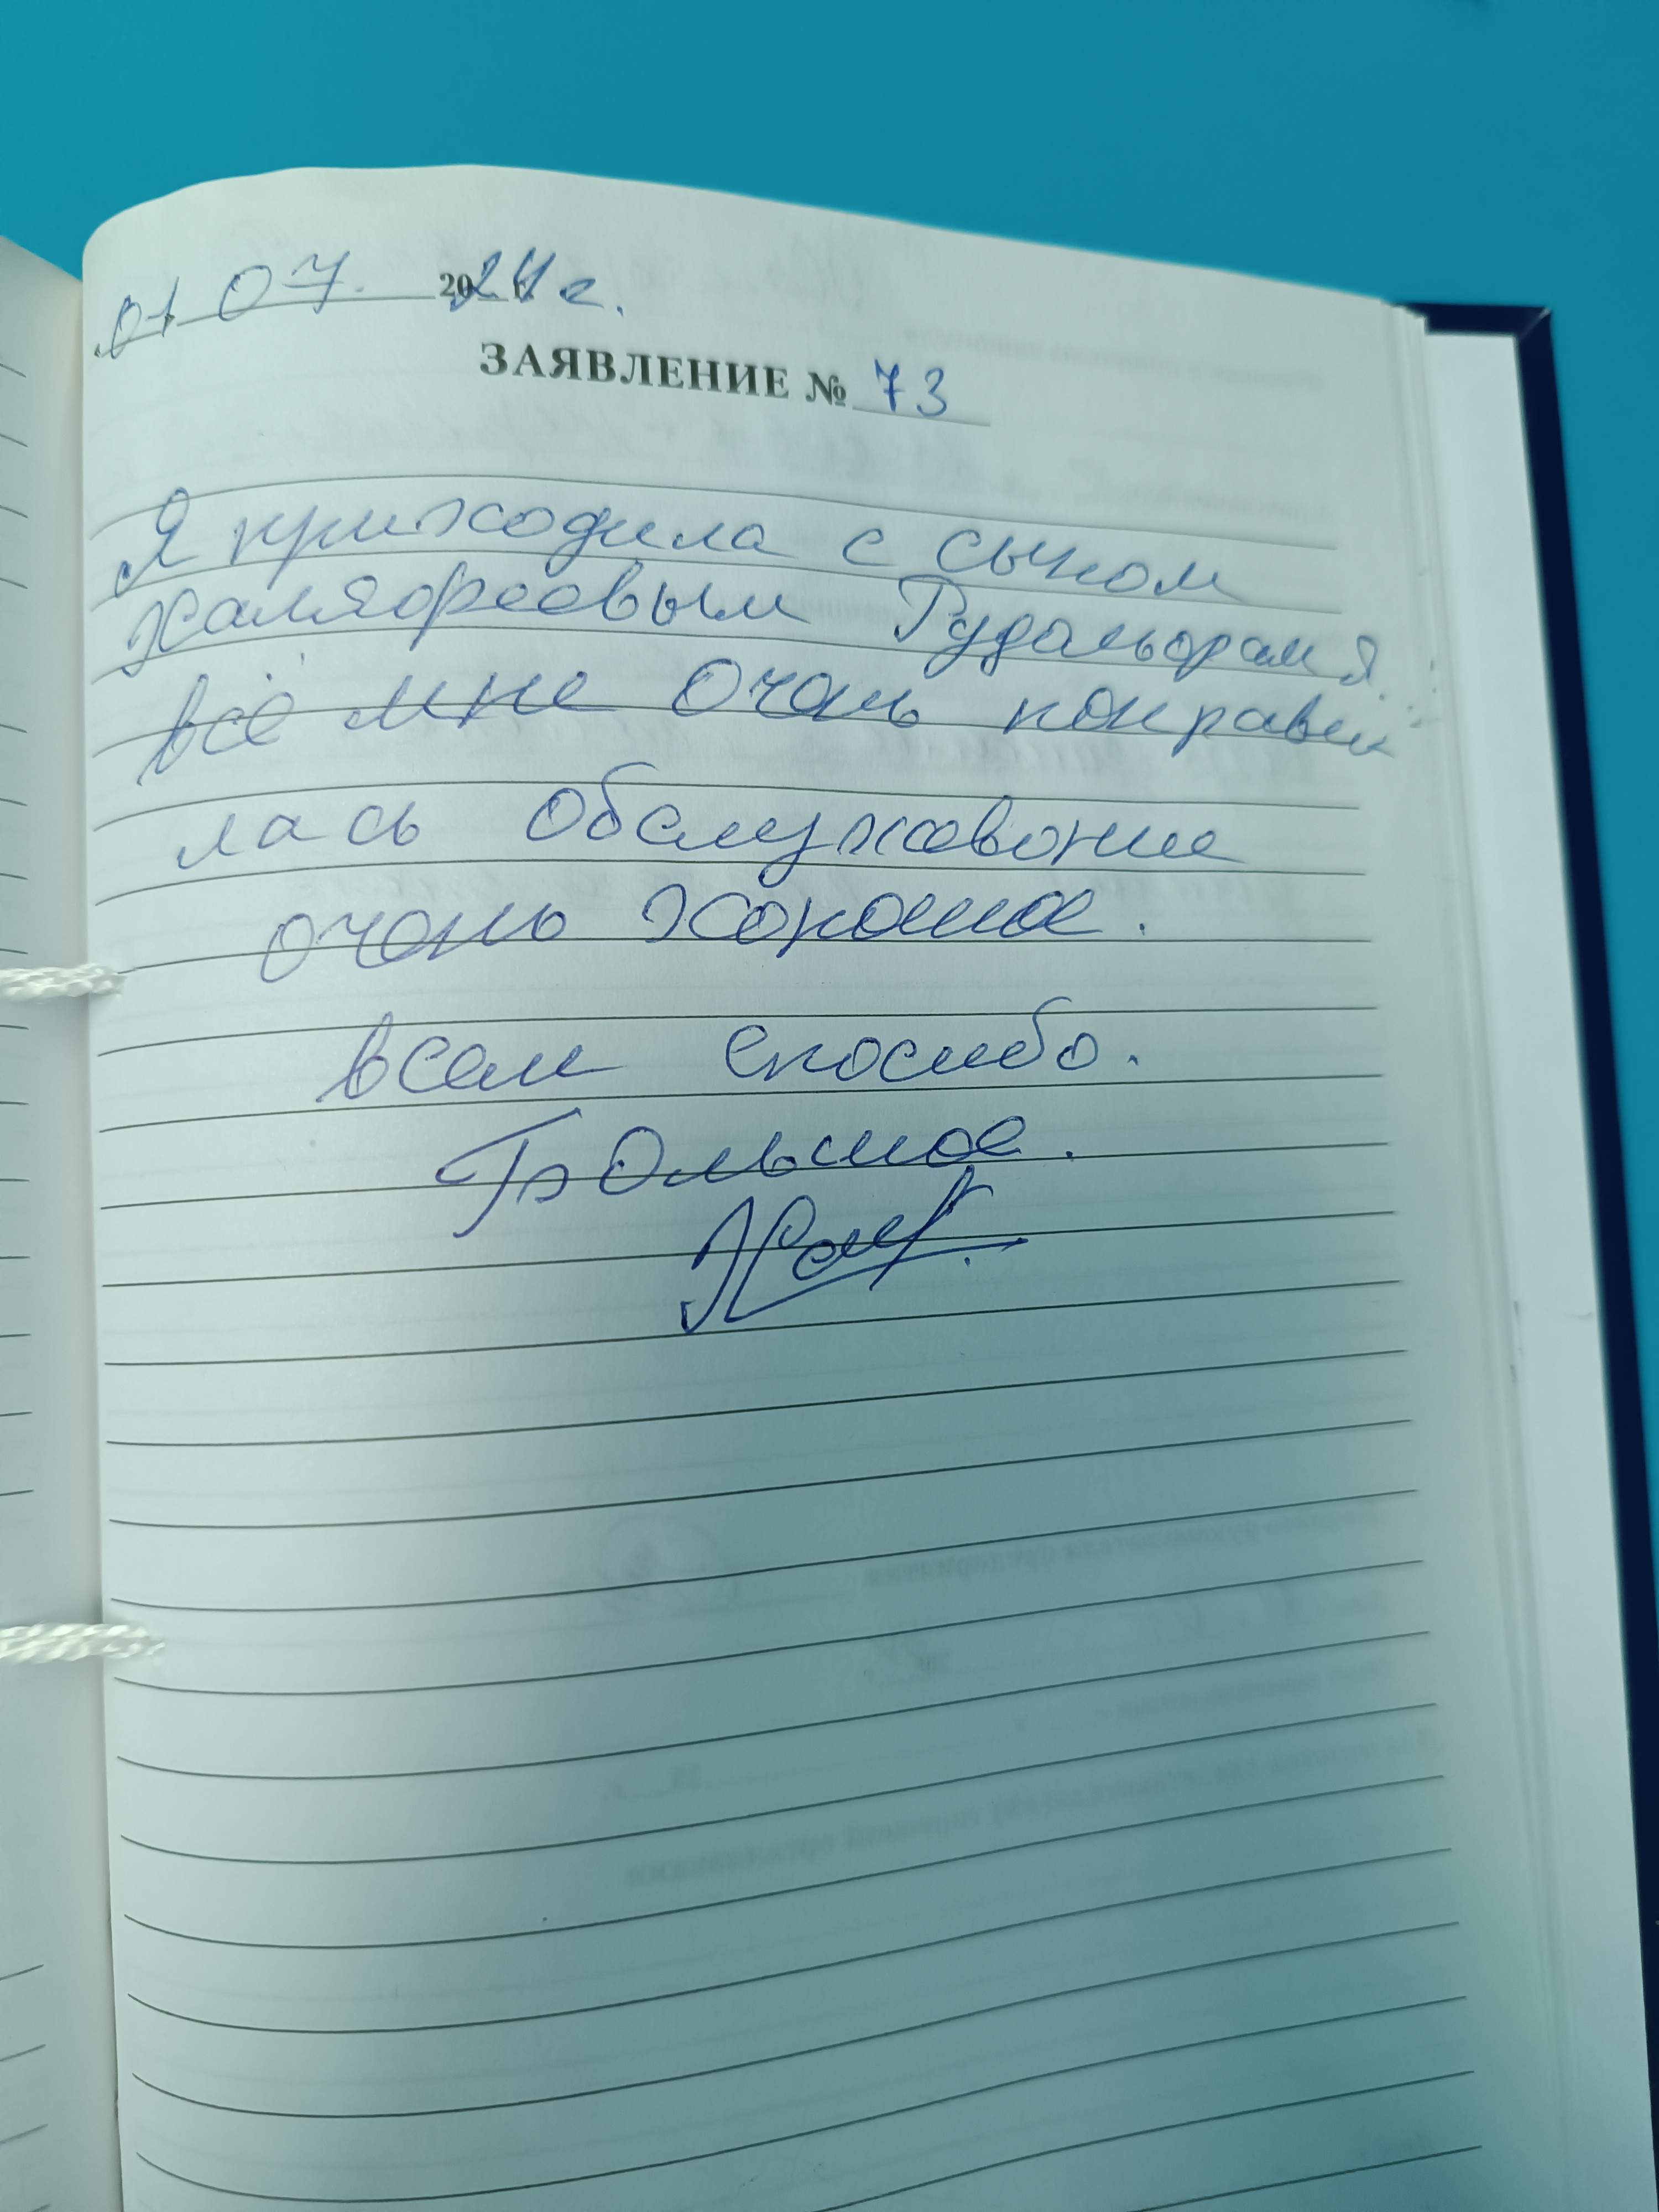 01 07. 2024 г.
ЗАЯВЛЕНИЕ № 73
Я приходила с сыном
Халяфеевым Рудольфам Я
всё мне очень понрави
лась обслужование
очень хорошое.
всем спосибо.
Большое.